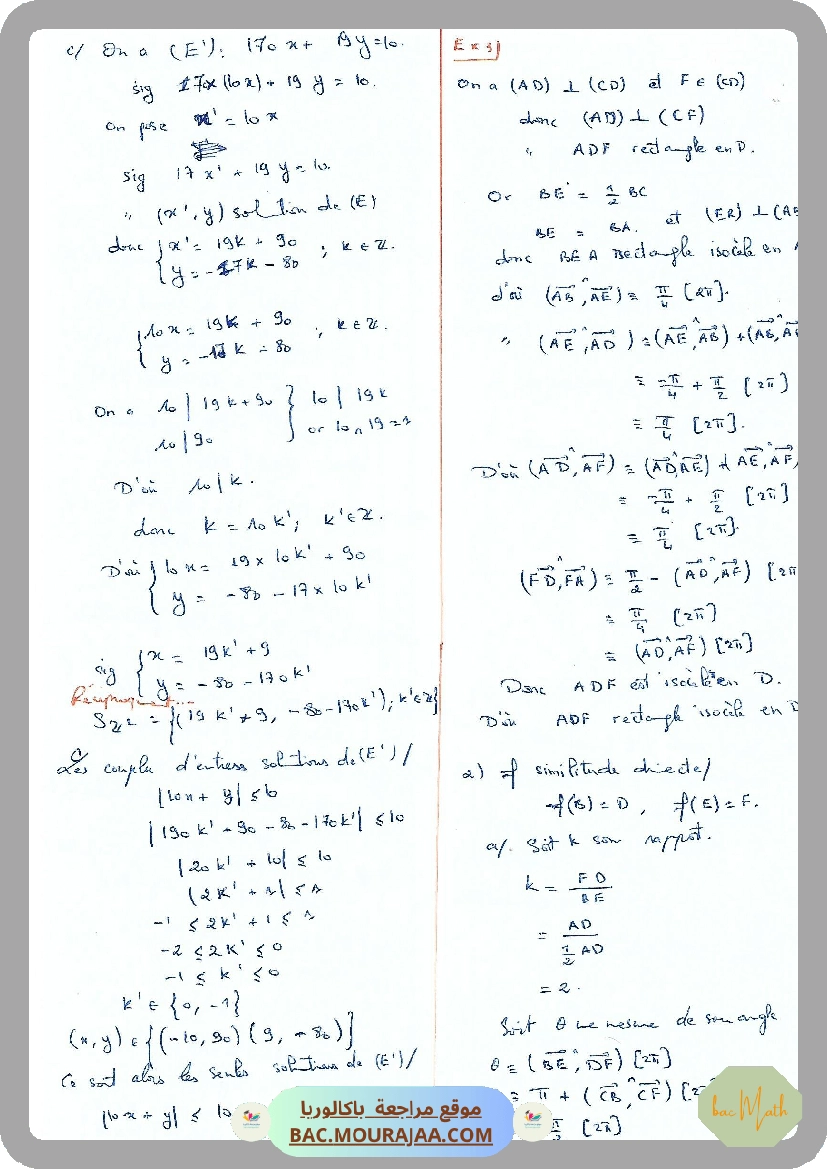 c/ On a (E'): 170x + 19y = 10.
sig 17x(10x) + 19 y = 10.
On pose x' = 10x
sig 17x' + 19y = 10.
" (x', y) solution de (E)
donc { x' = 19k + 90 ; k ∈ Z.
y = -17k - 80
{ 10x = 19k + 90 ; k ∈ Z.
y = -17k - 80
On a 10 | 19k + 90 } 10 | 19k
10 | 90 or 10 ∧ 19 = 1
D'où 10 | k.
donc k = 10k' ; k' ∈ Z.
D'où { 10x = 19 x 10k' + 90
y = -80 - 17 x 10k'
sig { x = 19k' + 9
y = -80 - 170k'
Réciproquement...
S Z² = {(19k' + 9, -80 - 170k'); k' ∈ Z}
Les couples d'entiers solutions de (E') /
|10x + y| ≤ 10
|190k' + 90 - 80 - 170k'| ≤ 10
|20k' + 10| ≤ 10
|2k' + 1| ≤ 1
-1 ≤ 2k' + 1 ≤ 1
-2 ≤ 2k' ≤ 0
-1 ≤ k' ≤ 0
k' ∈ {0, -1}
(x, y) ∈ {(-10, 90) (9, -80)}
Ce sont alors les seules solutions de (E') /
|10x + y| ≤ 10
Ex 3)
On a (AD) ⊥ (CD) et F ∈ (CD)
donc (AD) ⊥ (CF)
" ADF rectangle en D.
Or BE = 1/2 BC
BE = BA. et (EB) ⊥ (A
donc BEA Rectangle isocèle en
d'où (AB, AE) ≡ π/4 [2π].
" (AE, AD) ≡ (AE, AB) + (AB, A
≡ -π/4 + π/2 [2π]
≡ π/4 [2π].
D'où (AD, AF) ≡ (AD, AE) + (AE, AF)
≡ -π/4 + π/2 [2π]
≡ π/4 [2π].
(FD, FA) ≡ π/2 - (AD, AF) [2π
≡ π/4 [2π]
≡ (AD, AF) [2π]
Donc ADF est isocèle en D.
D'où ADF rectangle isocèle en D
2) f similitude directe /
f(B) = D, f(E) = F.
a/. Soit k son rapport.
k = FD/BE
= AD / 1/2 AD
= 2.
Soit θ une mesure de son angle
θ ≡ (BE, DF) [2π]
≡ π + (CB, CF) [2
[2π]
موقع مراجعة باكالوريا
BAC.MOURAJAA.COM
bac Math